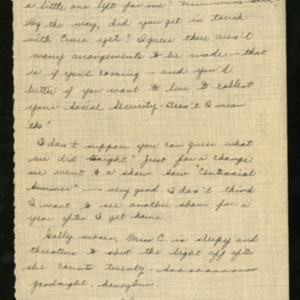 a little one left for me?
By the way, did you get in touch
with Cince yet? I guess there aren't
many arrangements to be made - that
is if you're coming - and you'd
better if you want to live to collect
your Social Security. Aren't I mean
tho'
I don't suppose you can guess what
we did tonight? Just for a change
we went to a show. Saw "Centennial
Summer" - very good. I don't think
I want to see another show for a
year after I get home.
Gally moses, Miss C. is sleepy and
threatens to shut the light off after
she counts twenty. Soooooooooooo
goodnight, honeybun